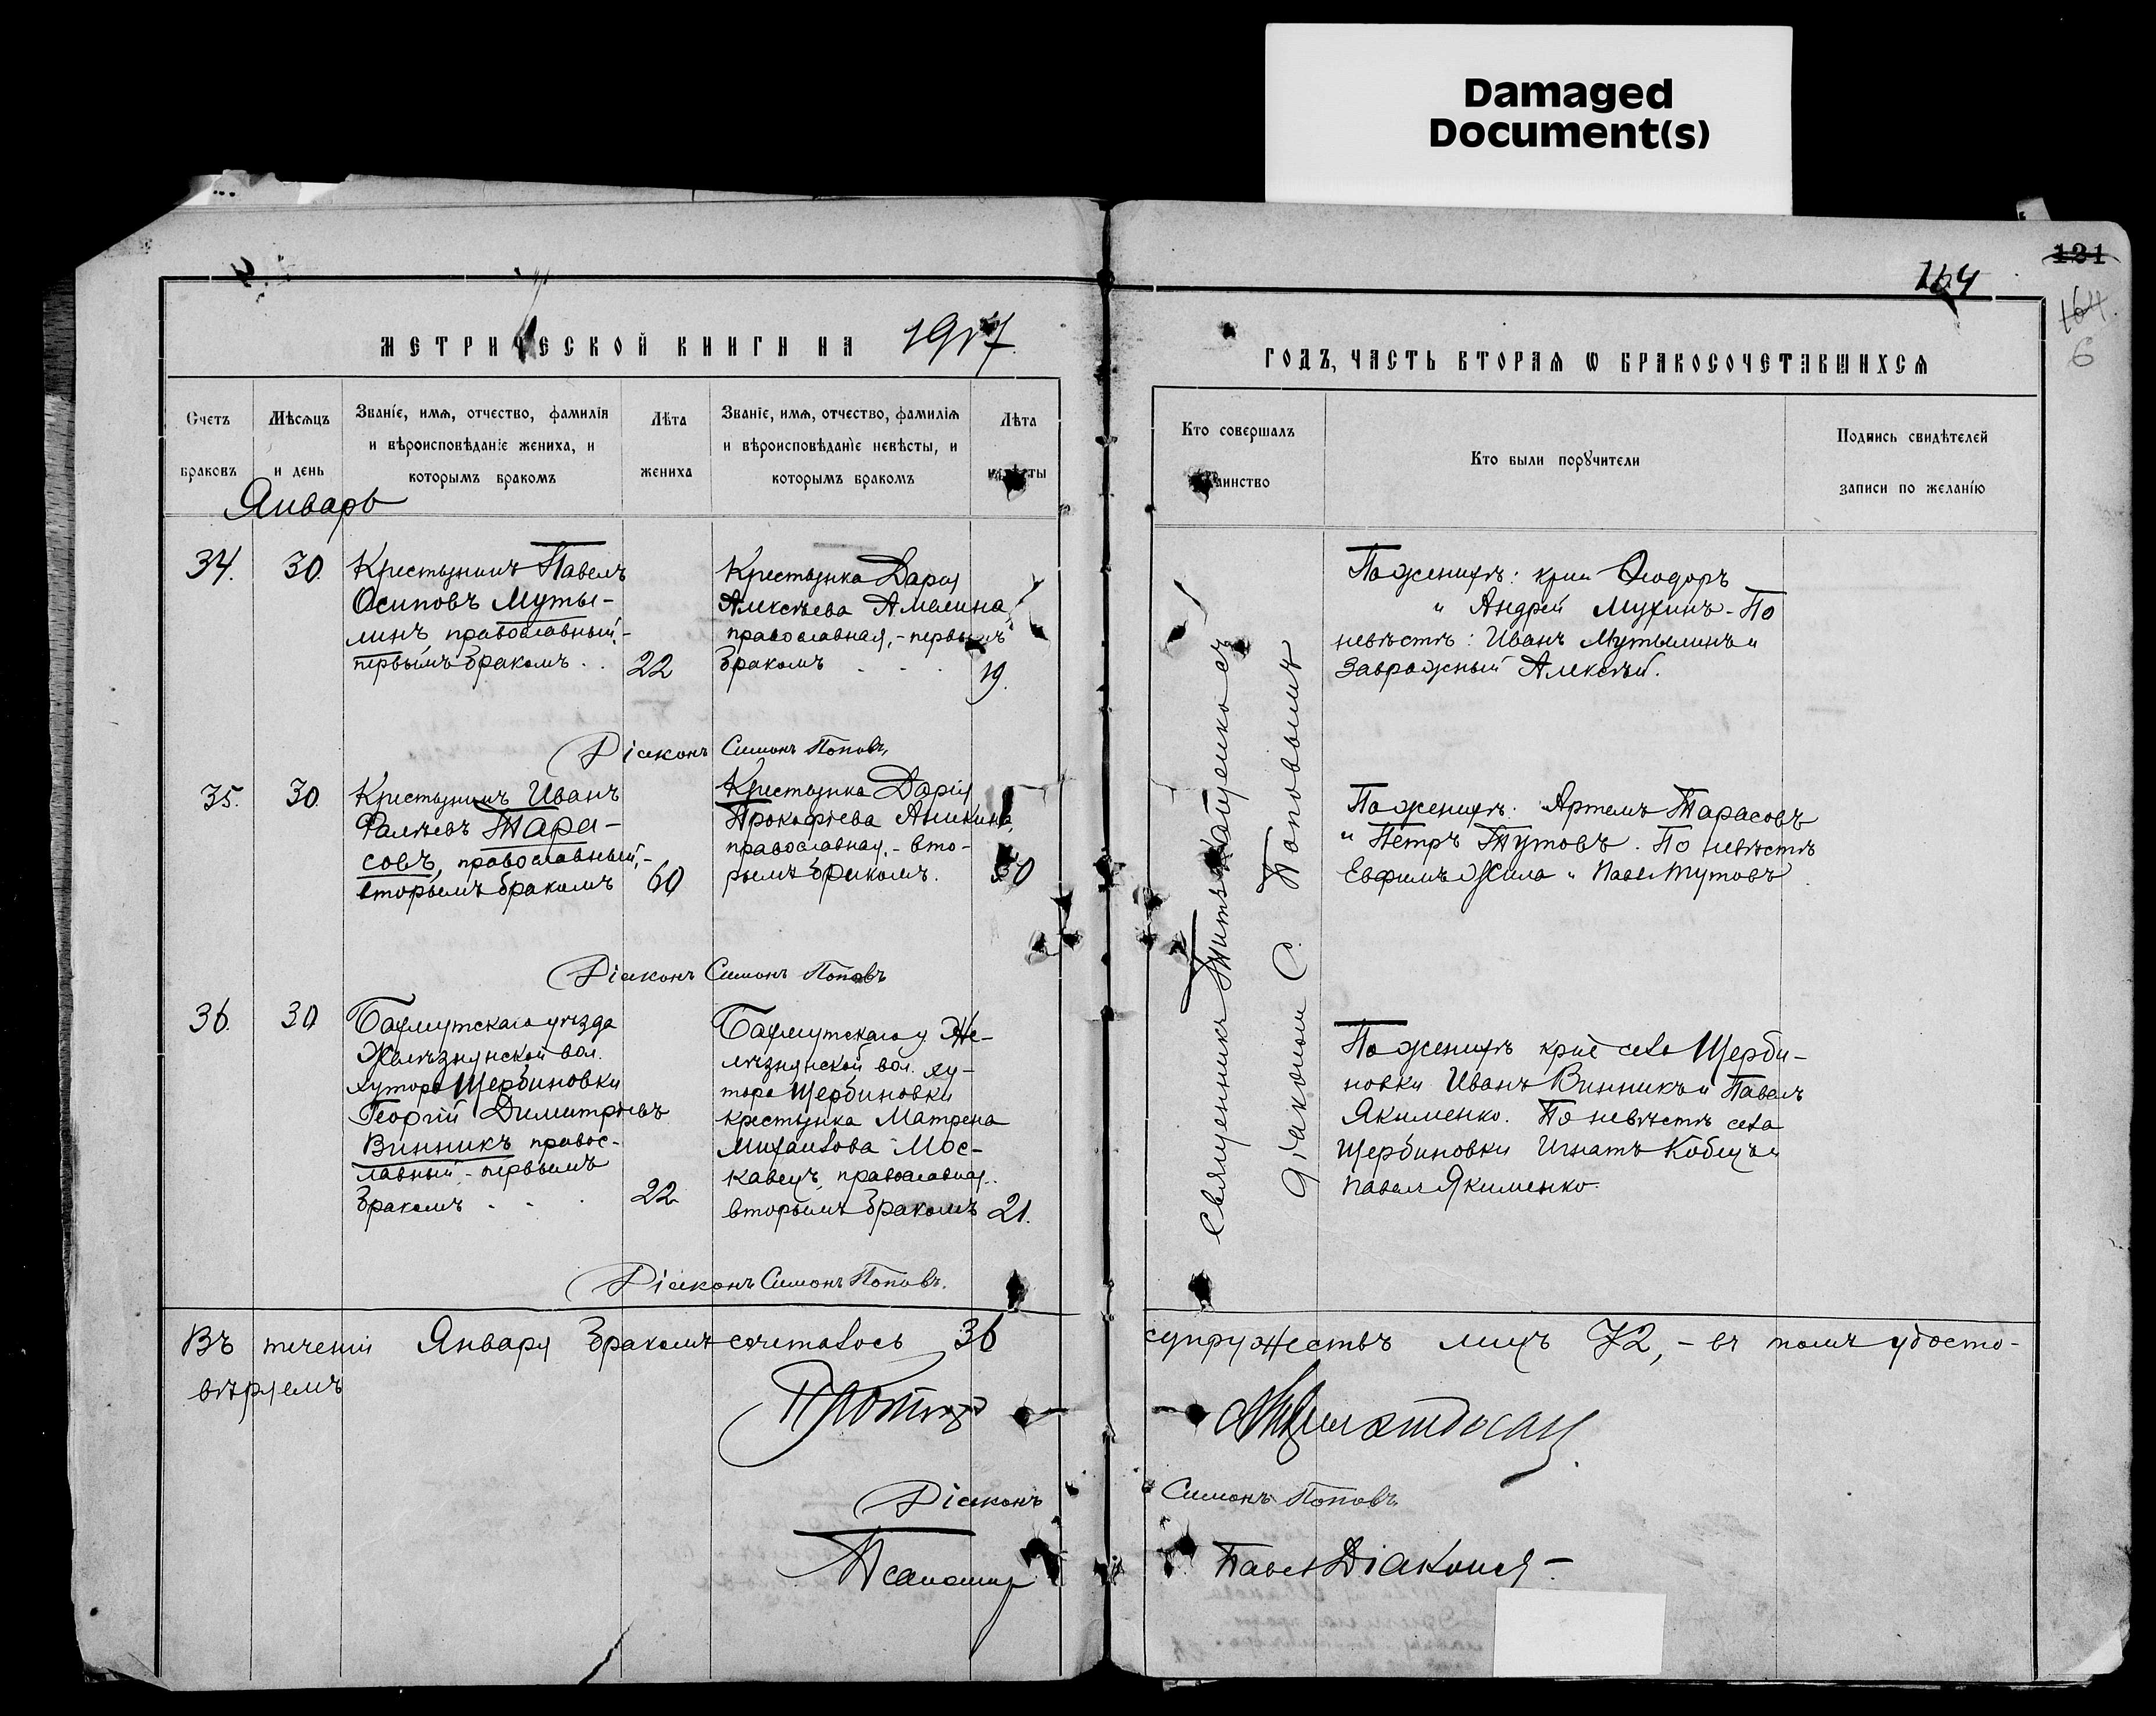 Damaged
Document(s)
121
164
164.
6
МЕТРИЧЕСКОЙ КНИГИ НА 1917
ГОДЪ, ЧАСТЬ ВТОРАЯ Ѡ БРАКОСОЧЕТАВШИХСЯ
Счетъ
браковъ
Мѣсяцъ
и день
Званіе, имя, отчество, фамилія
и вѣроисповѣданіе жениха, и
которымъ бракомъ
Лѣта
жениха
Званіе, имя, отчество, фамилія
и вѣроисповѣданіе невѣсты, и
которымъ бракомъ
Лѣта
Кто совершалъ
Кто были поручители
Подпись свидѣтелей
записи по желанію
Январь
34.
30.
Крестьянинъ Павелъ
Осиповъ Муты-
линъ православный,-
первымъ бракомъ . .
22
Крестьянка Дарія
Алексѣева Амелина
православная,- первымъ
бракомъ . . .
19.
По женихѣ: крест. Ѳеодоръ
и Андрей Мухинъ.- По
невѣстѣ: Иванъ Мутылинъ и
Завражный Алексѣй.
Діаконъ Симонъ Поповъ,
35.
30.
Крестьянинъ Иванъ
Фалѣевъ Тара-
совъ, православный,-
вторымъ бракомъ
60
Крестьянка Дарія
Прокофіева Аникина,
православная,- вто-
рымъ бракомъ.
50
По женихѣ: Артемъ Тарасовъ
и Петръ Тутовъ. По невѣстѣ
Евфимъ Жила и Павел Тутовъ.
Діаконъ Симонъ Поповъ
36.
30
Бахмутскаго уѣзда
Желѣзнянской вол.
хутора Щербиновки
Георгій Димитріевъ
Винникъ правос-
лавный,- первымъ
бракомъ . . .
22
Бахмутскаго у Же-
лѣзнянской вол. ху-
тора Щербиновки
крестьянка Матрена
Михаилова Мос-
кавецъ, православная.
вторымъ бракомъ
21.
По женихѣ кр-не села Щерби-
новки Иванъ Винникъ и Павелъ
Якименко. По невѣстѣ села
Щербиновки Игнатъ Кобецъ и
Павел Якименко.
Священникъ Титъ съ
діаконом С. Поповымъ
Діаконъ Симонъ Поповъ.
Въ теченіи Января бракомъ сочеталось 36
супружествъ лицъ 72,- въ томъ удосто-
вѣряемъ
Діаконъ Симонъ Поповъ.
Псаломщ Павел Діаконов -